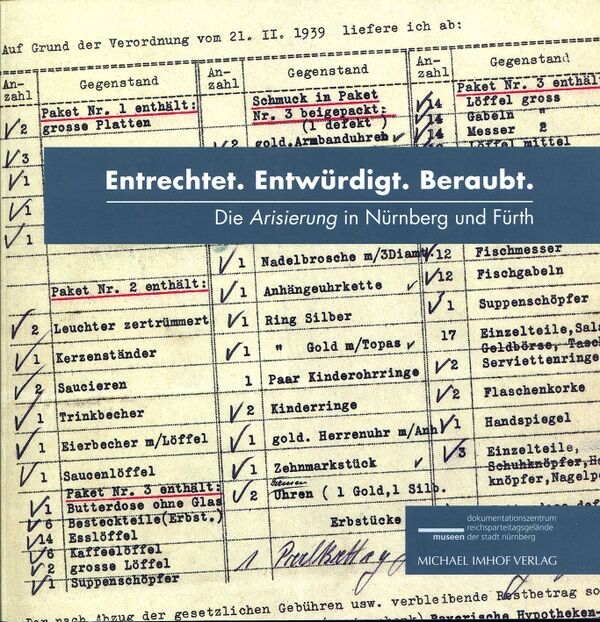 Auf Grund der Verordnung vom 21. II. 1939 liefere ich ab:
An-
zahl
Gegenstand
Paket Nr. 1 enthält:
2 grosse Platten
3
1
1
1
Paket Nr. 2 enthält:
2 Leuchter zertrümmert
1 Kerzenständer
2 Saucieren
1 Trinkbecher
1 Eierbecher m/Löffel
1 Saucenlöffel
Paket Nr. 3 enthält:
1 Butterdose ohne Glas
6 Besteckteile(Erbst.)
14 Esslöffel
6 Kaffeelöffel
2 grosse Löffel
1 Suppenschöpfer
An-
zahl
Gegenstand
Schmuck in Paket
Nr. 3 beigepackt:
(1 defekt )
2 gold.Armbanduhren
1 Nadelbrosche m/3Diamt.
1 Anhängeuhrkette
1 Ring Silber
1 " Gold m/Topas
1 Paar Kinderohrringe
2 Kinderringe
1 gold. Herrenuhr m/Anh
1 Zehnmarkstück
2 Uhren ( 1 Gold,1 Silb.
Erbstücke
1
An-
zahl
Gegenstand
Paket Nr. 3 enthäl
14 Löffel gross
14 Gabeln "
14 Messer 2
Löffel mittel
12 Fischmesser
12 Fischgabeln
1 Suppenschöpfer
17 Einzelteile,Sala
Geldbörse, Tasc
2 Serviettenringe
2 Flaschenkorke
1 Handspiegel
3 Einzelteile,
Schuhknöpfer,Ha
knöpfer,Nagelpo
Entrechtet. Entwürdigt. Beraubt.
Die Arisierung in Nürnberg und Fürth
dokumentationszentrum
reichsparteitagsgelände
museen der stadt nürnberg
MICHAEL IMHOF VERLAG
Der nach Abzug der gesetzlichen Gebühren usw. verbleibende Restbetrag so
Bayerische Hypotheken-